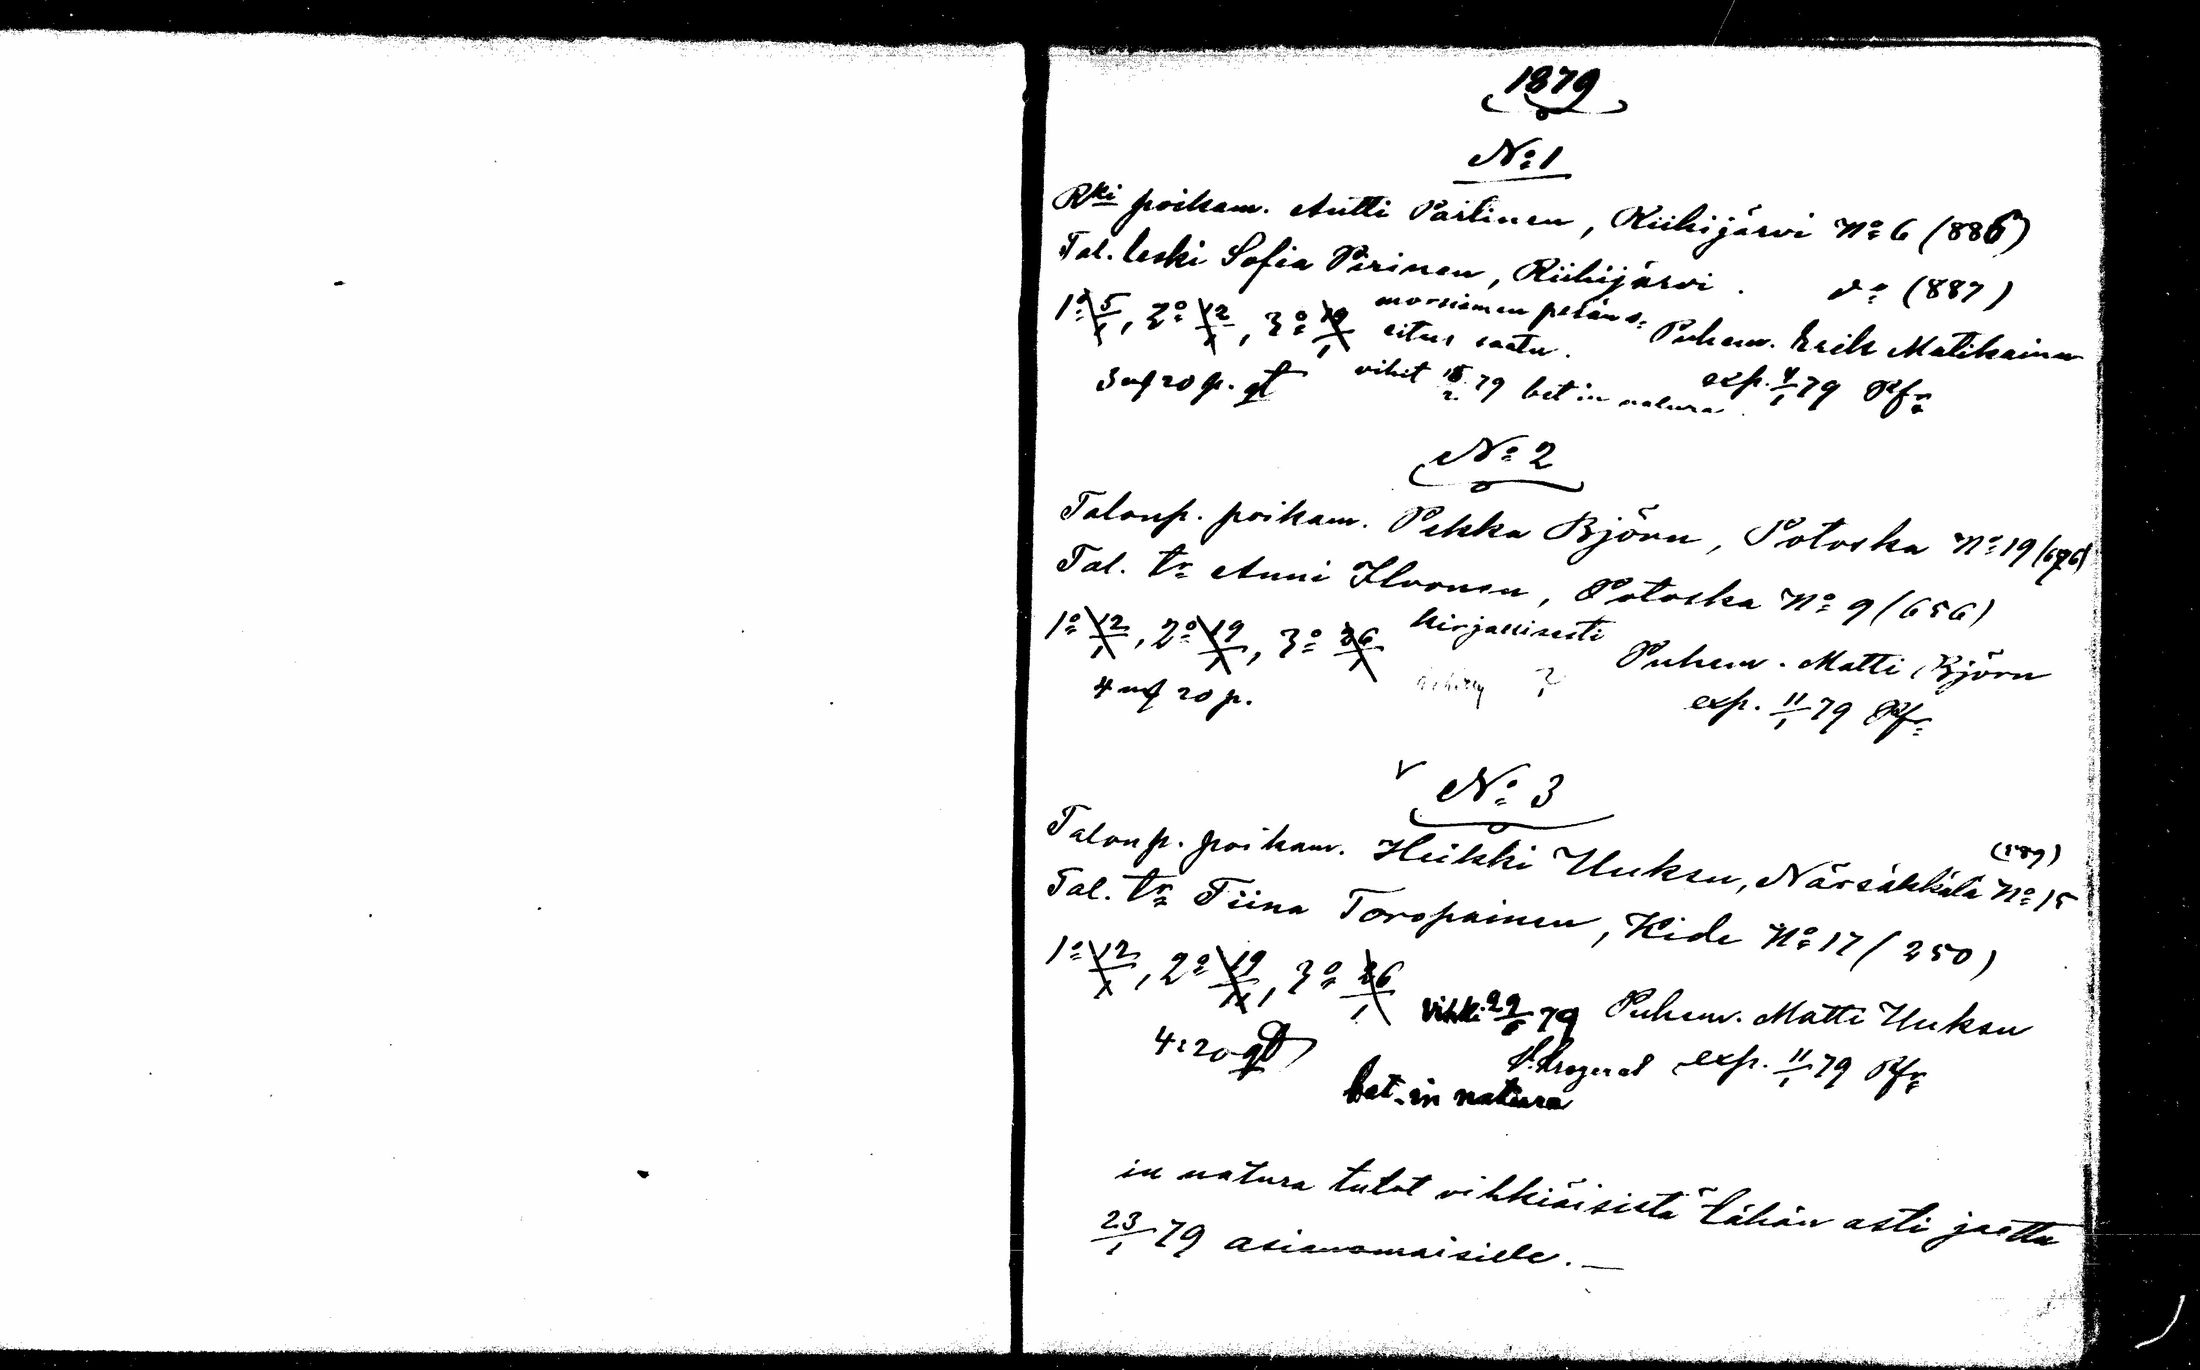 1879
No 1
Rki poikam. Antti Partinen, Riihijärvi No 6 (886)
Tal. leski Sofia Pirinen, Riihijärvi. do (887)
1o 5/1, 2o 12/1, 3o 19/1 morsiamen perän-
eitus saatu. Puhem. Erik Matikainen
3 mf 20 p. qt vihit 15/2 79 bet in natura. exp. 4/1 79 Rfr
No 2
Talonp. poikam. Pekka Björn, Potoska No 19 (676)
Tal. tr Anni Ilvonen, Potoska No 9 (656)
1o 12/1, 2o 19/1, 3o 26/1 kirjallisesti Puhem. Matti Björn
4 mf 20 p. ? exp. 11/1 79 Rfr
No 3
Talonp. poikam. Heikki Uuksu, Närsäkkälä No 15 (589)
Tal. tr Tiina Toropainen, Kide No 17 (250)
1o 12/1, 2o 19/1, 3o 26/1 vihki 29/6 79 Puhem. Matti Uuksu
4:20 qt exp. 11/1 79 Rfr
bet. in natura
in natura tulot vihkiäisistä tähän asti jaettu
23/1 79 asianomaisille. —